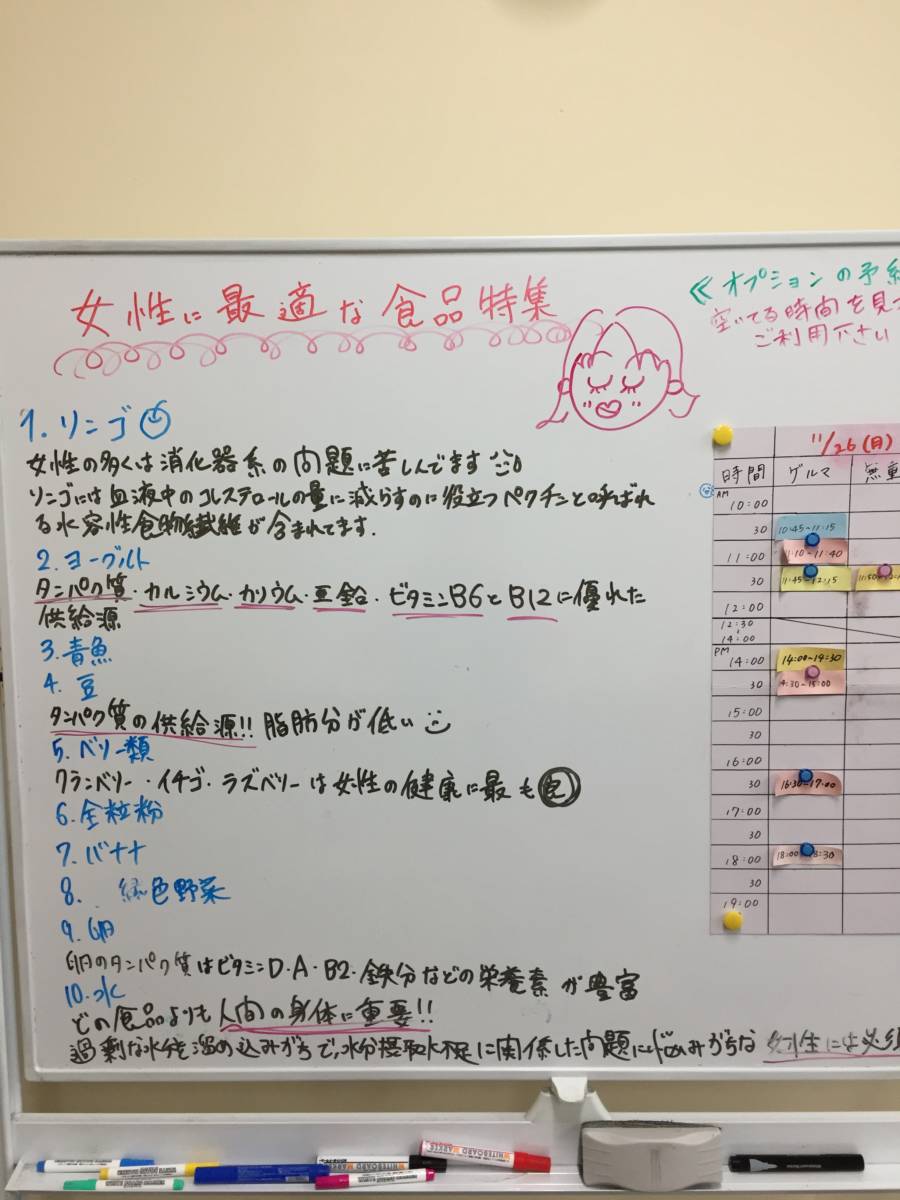 女性に最適な食品特集
1. リンゴ
女性の多くは消化器系の問題に苦しんでます
リンゴには血液中のコレステロールの量に減らすのに役立つペクチンと呼ばれ
る水容性食物繊維が含まれてます.
2. ヨーグルト
タンパク質・カルシウム・カリウム・亜鉛・ビタミンB6とB12に優れた
供給源
3. 青魚
4. 豆
タンパク質の供給源!! 脂肪分が低い
5. ベリー類
クランベリー・イチゴ・ラズベリーは女性の健康に最も
6. 全粒粉
7. バナナ
8. 緑色野菜
9. 卵
卵のタンパク質はビタミンD・A・B2・鉄分などの栄養素が豊富
10. 水
どの食品よりも人間の身体に重要!!
過剰な水分を溜め込みがちで、水分摂取不足に関係した問題に悩みがちな 女性には必須
≪オプションの予約
空いてる時間を見て
ご利用下さい
11/26(日)
時間 ゲルマ 無重
AM
10:00
30 10:45~11:15
11:00 11:10~11:40
30 11:45~12:15 11:50~
12:00
12:30
14:00
PM
14:00 14:00~14:30
30 14:30~15:00
15:00
30
16:00
30 16:30~17:00
17:00
30
18:00 18:00 18:30
30
19:00
WHITEBOARD MARKER
WHITEBOARD MARKER